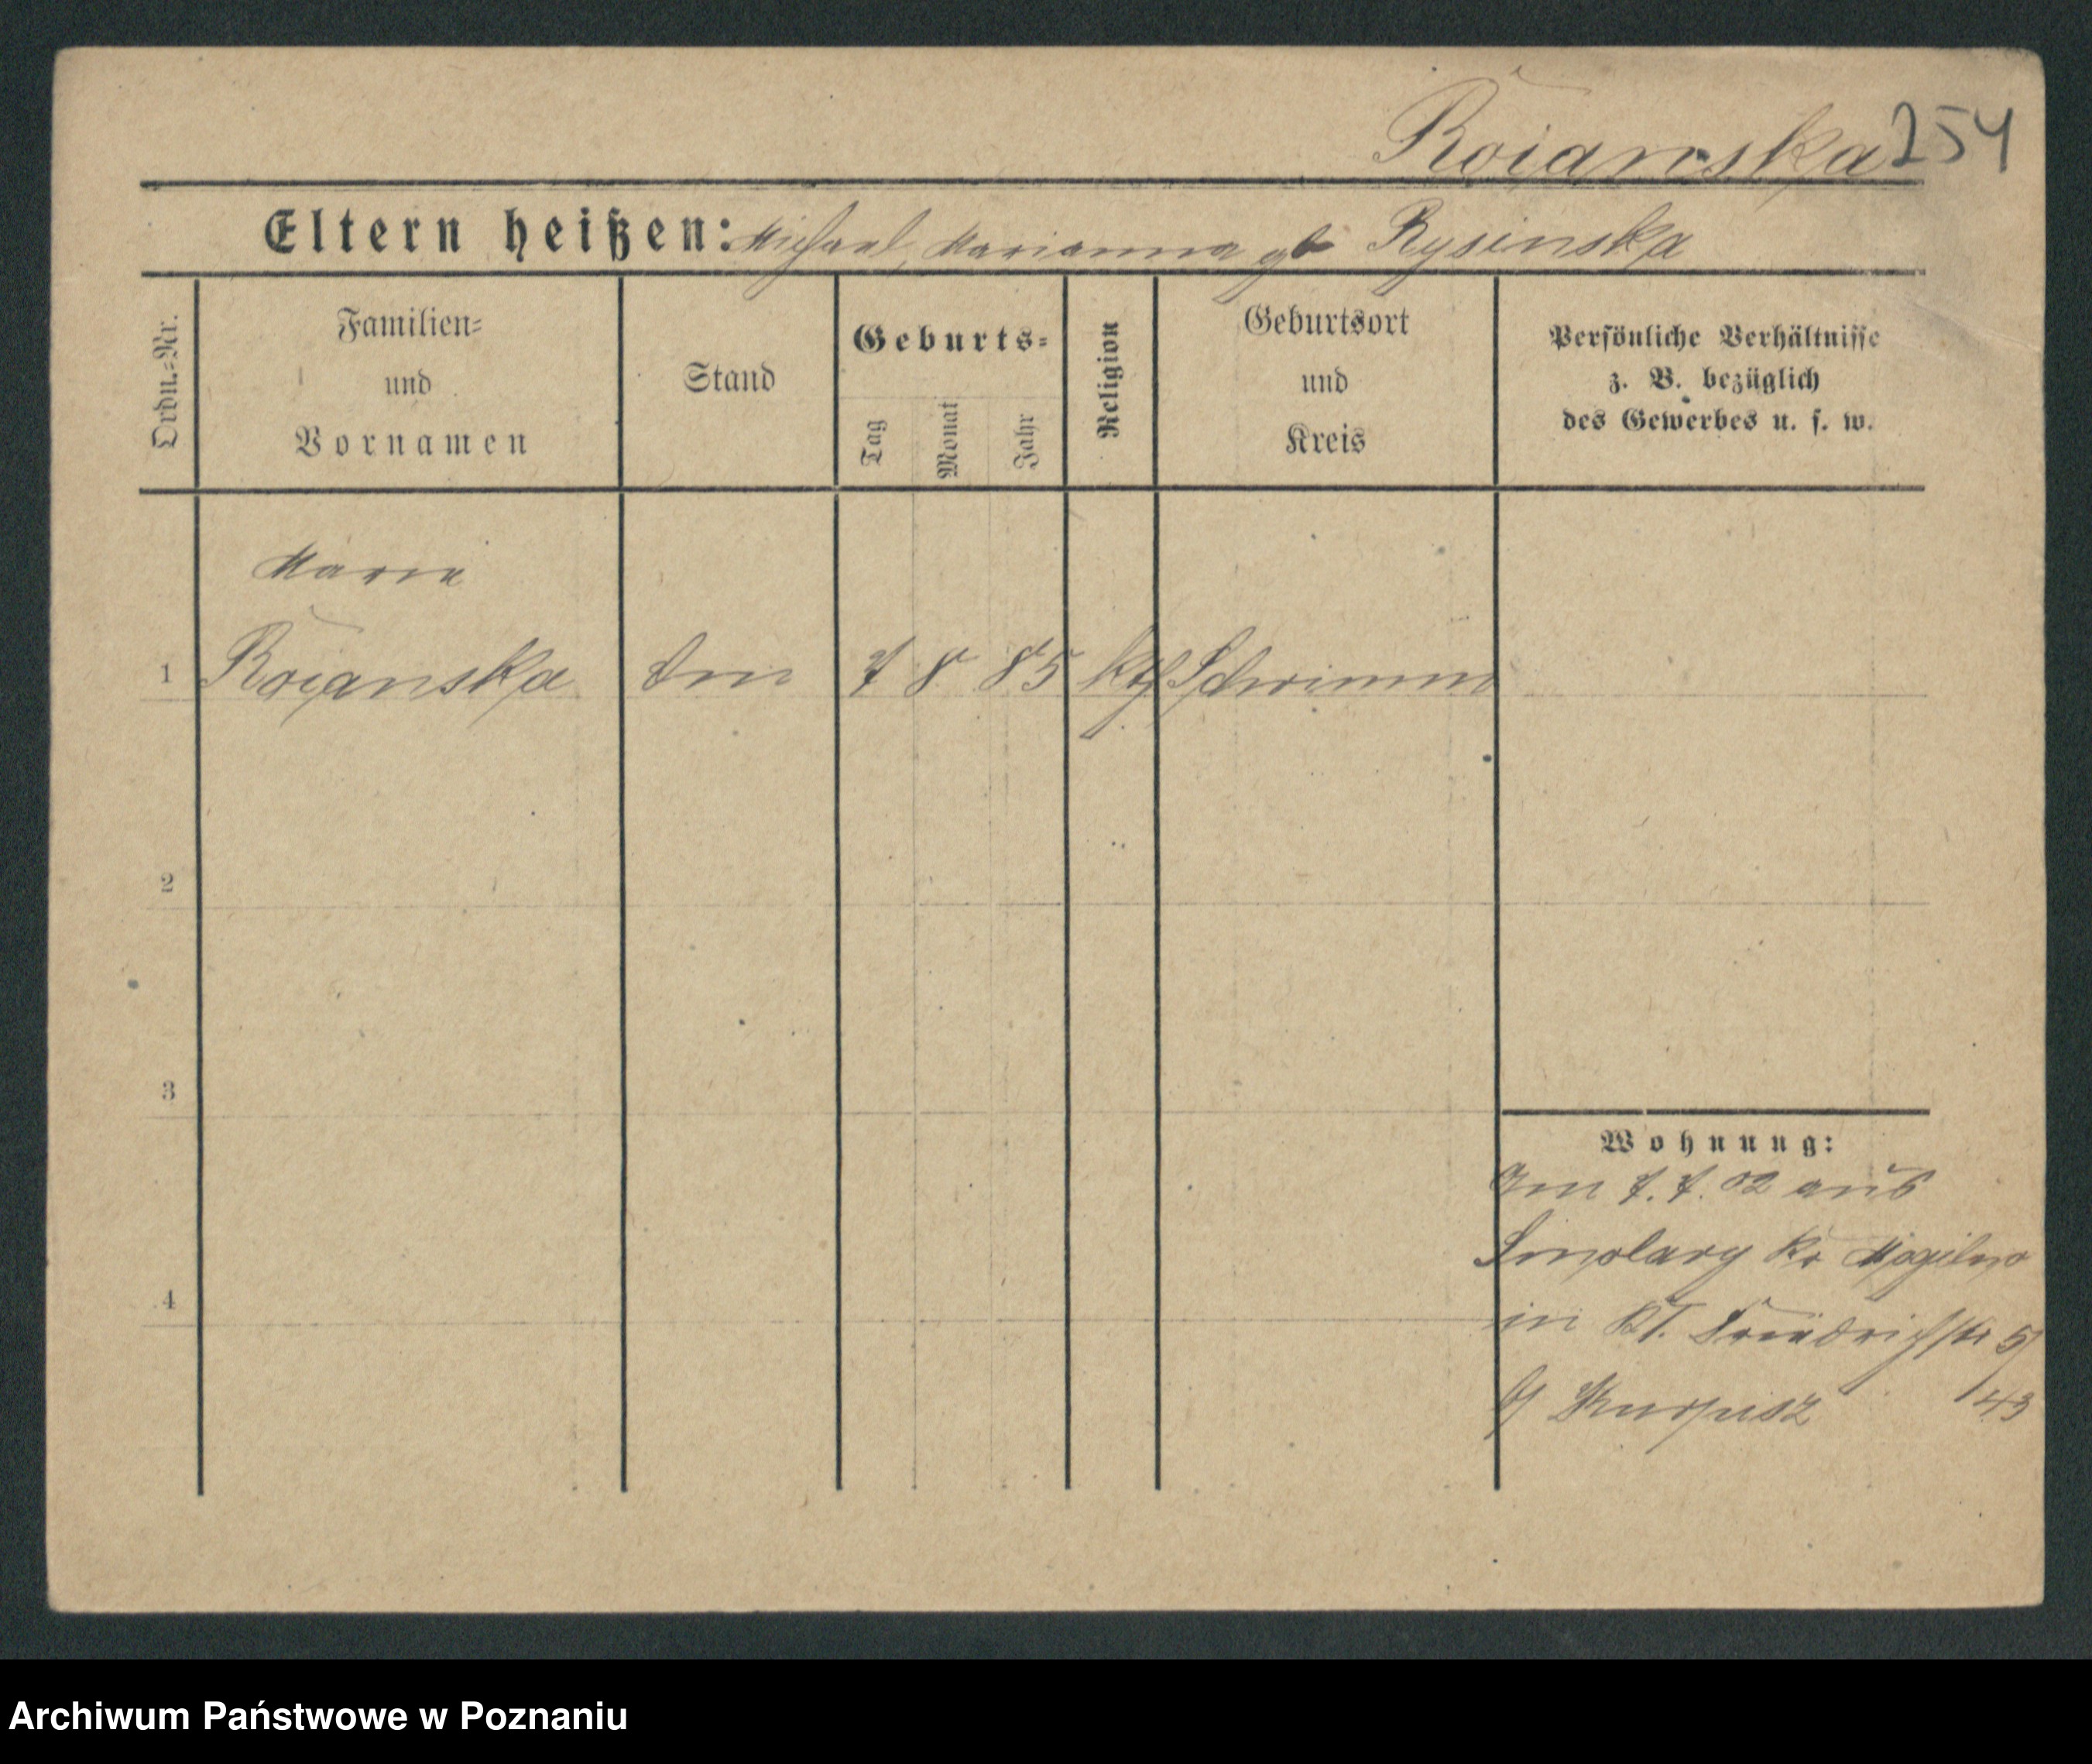 Roianska 254
Eltern heißen: Michael, Marianna gb Rysinska
Ordn.=Nr.
Familien=
und
Vornamen
Stand
Geburts=
Tag
Monat
Jahr
Religion
Geburtsort
und
Kreis
Persönliche Verhältnisse
z. B. bezüglich
des Gewerbes u. s. w.
Maria
1 Roianska 7 8 85 kth
2
3
4
Wohnung:
Am 7. 7. 02 aus
Smolary Kr Mogilno
in Friedrichstr 5/
143
Archiwum Państwowe w Poznaniu